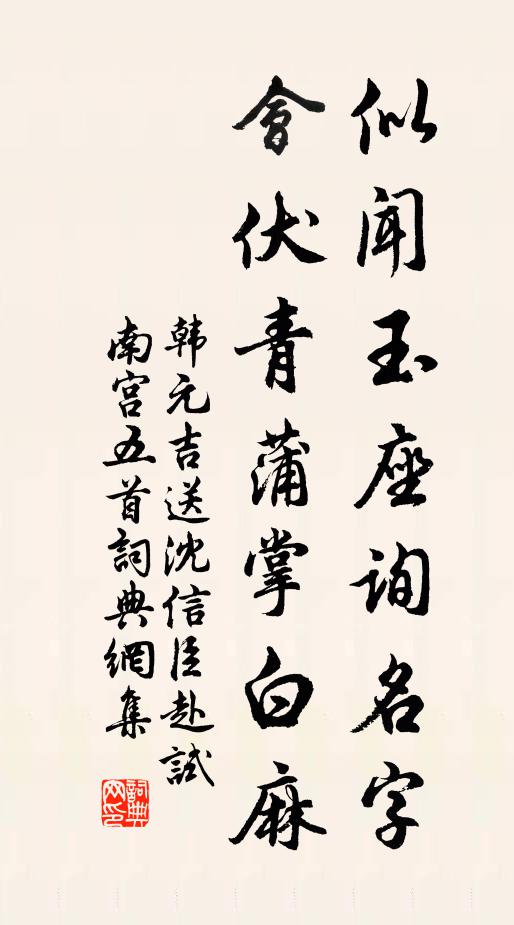 似闻玉座询名字
會伏青蒲掌白麻
韩元吉送沈信臣赴試
南宫五首詞典網集
詞典网印